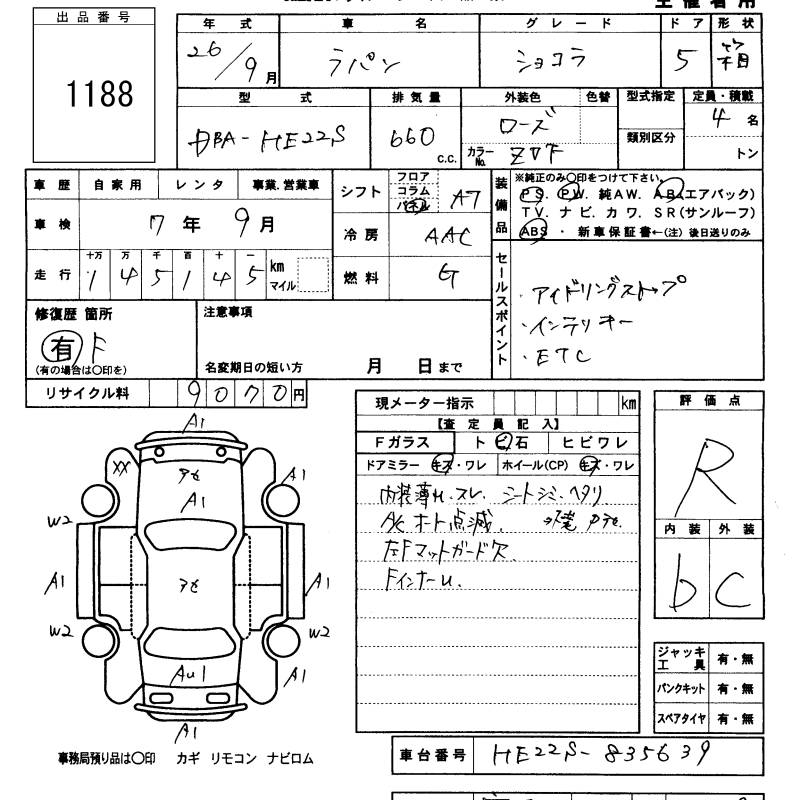 出品番号
1188
年式 車名 グレード ドア 形状
26/9月 ラパン ショコラ 5 箱
型式 排気量 外装色 色替 型式指定 定員・積載
DBA-HE22S 660 c.c. ローズ 4名
カラーNo. ZVF 類別区分 トン
車歴 自家用 レンタ 事業.営業車
車検 7年 9月
走行 十万 万 千 百 十 一
1 4 5 1 4 5 km マイル
シフト フロア コラム パネル AT
冷房 AAC
燃料 G
装備品 ※純正のみ○印をつけて下さい。
PS. PW. 純AW. AB(エアバック)
TV. ナビ. カワ. SR(サンルーフ)
ABS ・ 新車保証書←(注) 後日送りのみ
セールスポイント
・アイドリングストップ
・インテリキー
・ETC
修復歴 箇所 注意事項
有 F
(有の場合は○印を) 名変期日の短い方 月 日まで
リサイクル料 9070円
現メーター指示 km
【査定員記入】
Fガラス トビ石 ヒビワレ
ドアミラー キズ・ワレ ホイール(CP) キズ・ワレ
内装薄ヨゴレ.スレ. シートシミ.ヘタリ
点滅.
左Fマットガード欠
Fインナー
評価点
R
内装 外装
b C
ジャッキ工具 有・無
パンクキット 有・無
スペアタイヤ 有・無
A1
XX
アセ
A1
A1
W2
W2
A1
アセ
A1
W2
W2
AU1
A1
A1
事務局預り品は○印 カギ リモコン ナビロム
車台番号 HE22S-835639